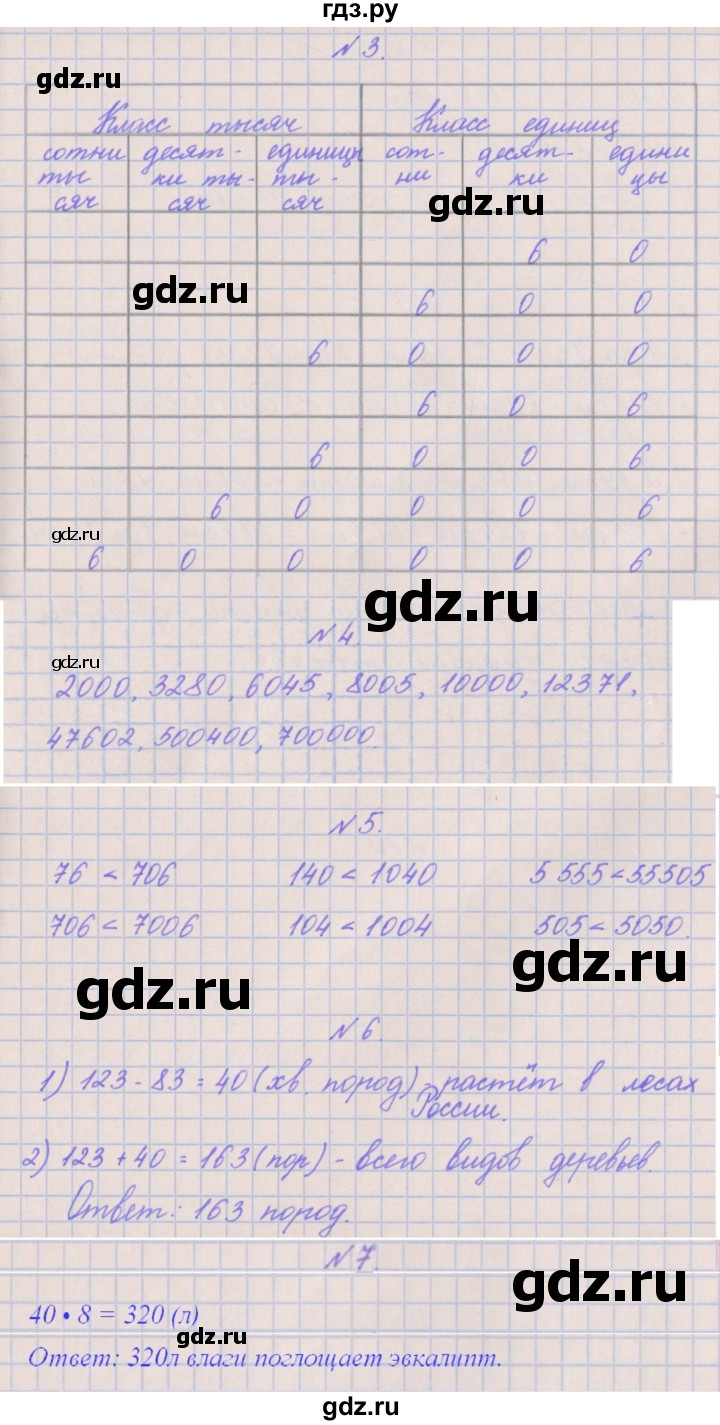 гдз.ру
№3.
gdz.ru
Класс тысяч Класс единиц
сотни десят- единицы сот- десят- едини
ты ки ты- ты- ни ки цы
сяч сяч сяч
gdz.ru
6 0
gdz.ru
6 0 0
6 0 0 0
6 0 6
6 0 0 6
6 0 0 0 6
gdz.ru
6 0 0 0 0 6
gdz.ru
№4.
gdz.ru
2000, 3280, 6045, 8005, 10000, 12371,
47602, 500400, 700000.
№5.
76 < 706 140 < 1040 5 555 < 55505
706 < 7006 104 < 1004 505 < 5050.
gdz.ru
gdz.ru
№6.
1) 123 - 83 = 40 (хв. пород) растёт в лесах
России.
2) 123 + 40 = 163 (пор) - всего видов деревьев.
Ответ: 163 пород.
№7.
gdz.ru
40 • 8 = 320 (л)
gdz.ru
Ответ: 320л влаги поглощает эвкалипт.
gdz.ru